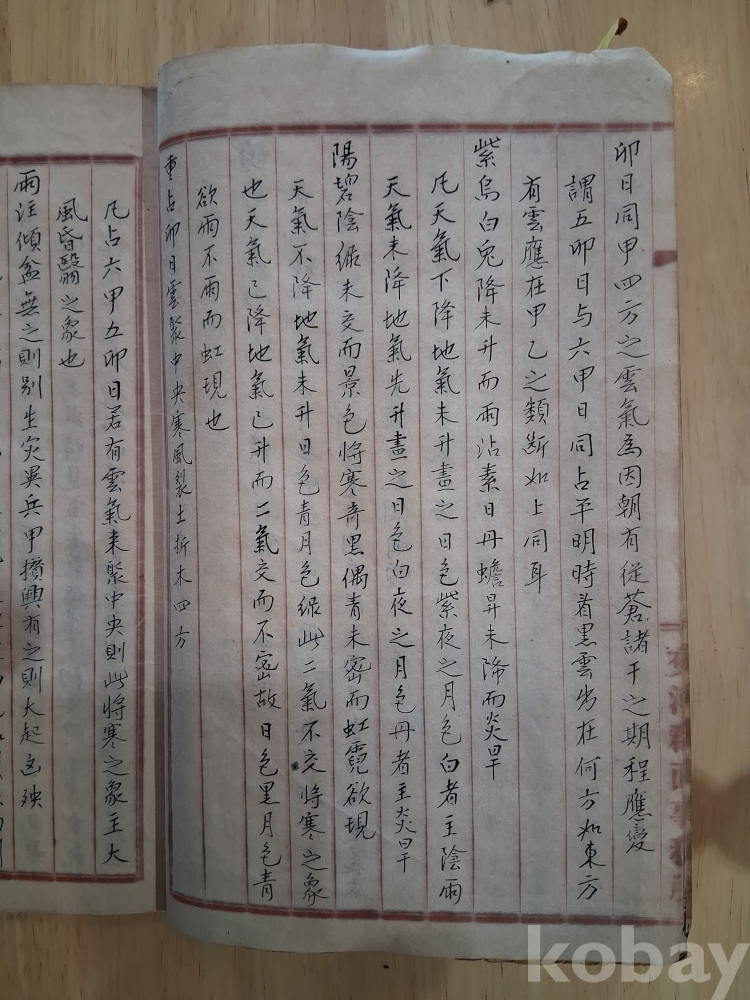 卯日同甲四方之雲氣為因朝有從蒼諸干之期程應變
謂五卯日与六甲日同占平明時看黒雲出在何方如東方
有雲應在甲乙之類斷如上同耳
紫烏白兎降未升而雨沾素日丹蟾昇未降而炎旱
凡天氣下降地氣未升晝之日色紫夜之月色白者主陰雨
天氣未降地氣先升晝之日色白夜之月色丹者主炎旱
陽碧陰緑未交而景色將寒奇黒偶青未密而虹霓欲現
天氣不降地氣未升日色青月色緑此二氣不交將寒之象
也天氣已降地氣已升而二氣交而不密故日色黒月色青
欲雨不雨而虹現也
重占卯日雲聚中央寒風裂土折木四方
凡占六甲五卯日若有雲氣来聚中央則此將寒之象主大
風昏翳之象也
雨注傾盆無之則別生灾異兵甲攅興有之則大起凶殃
kobay